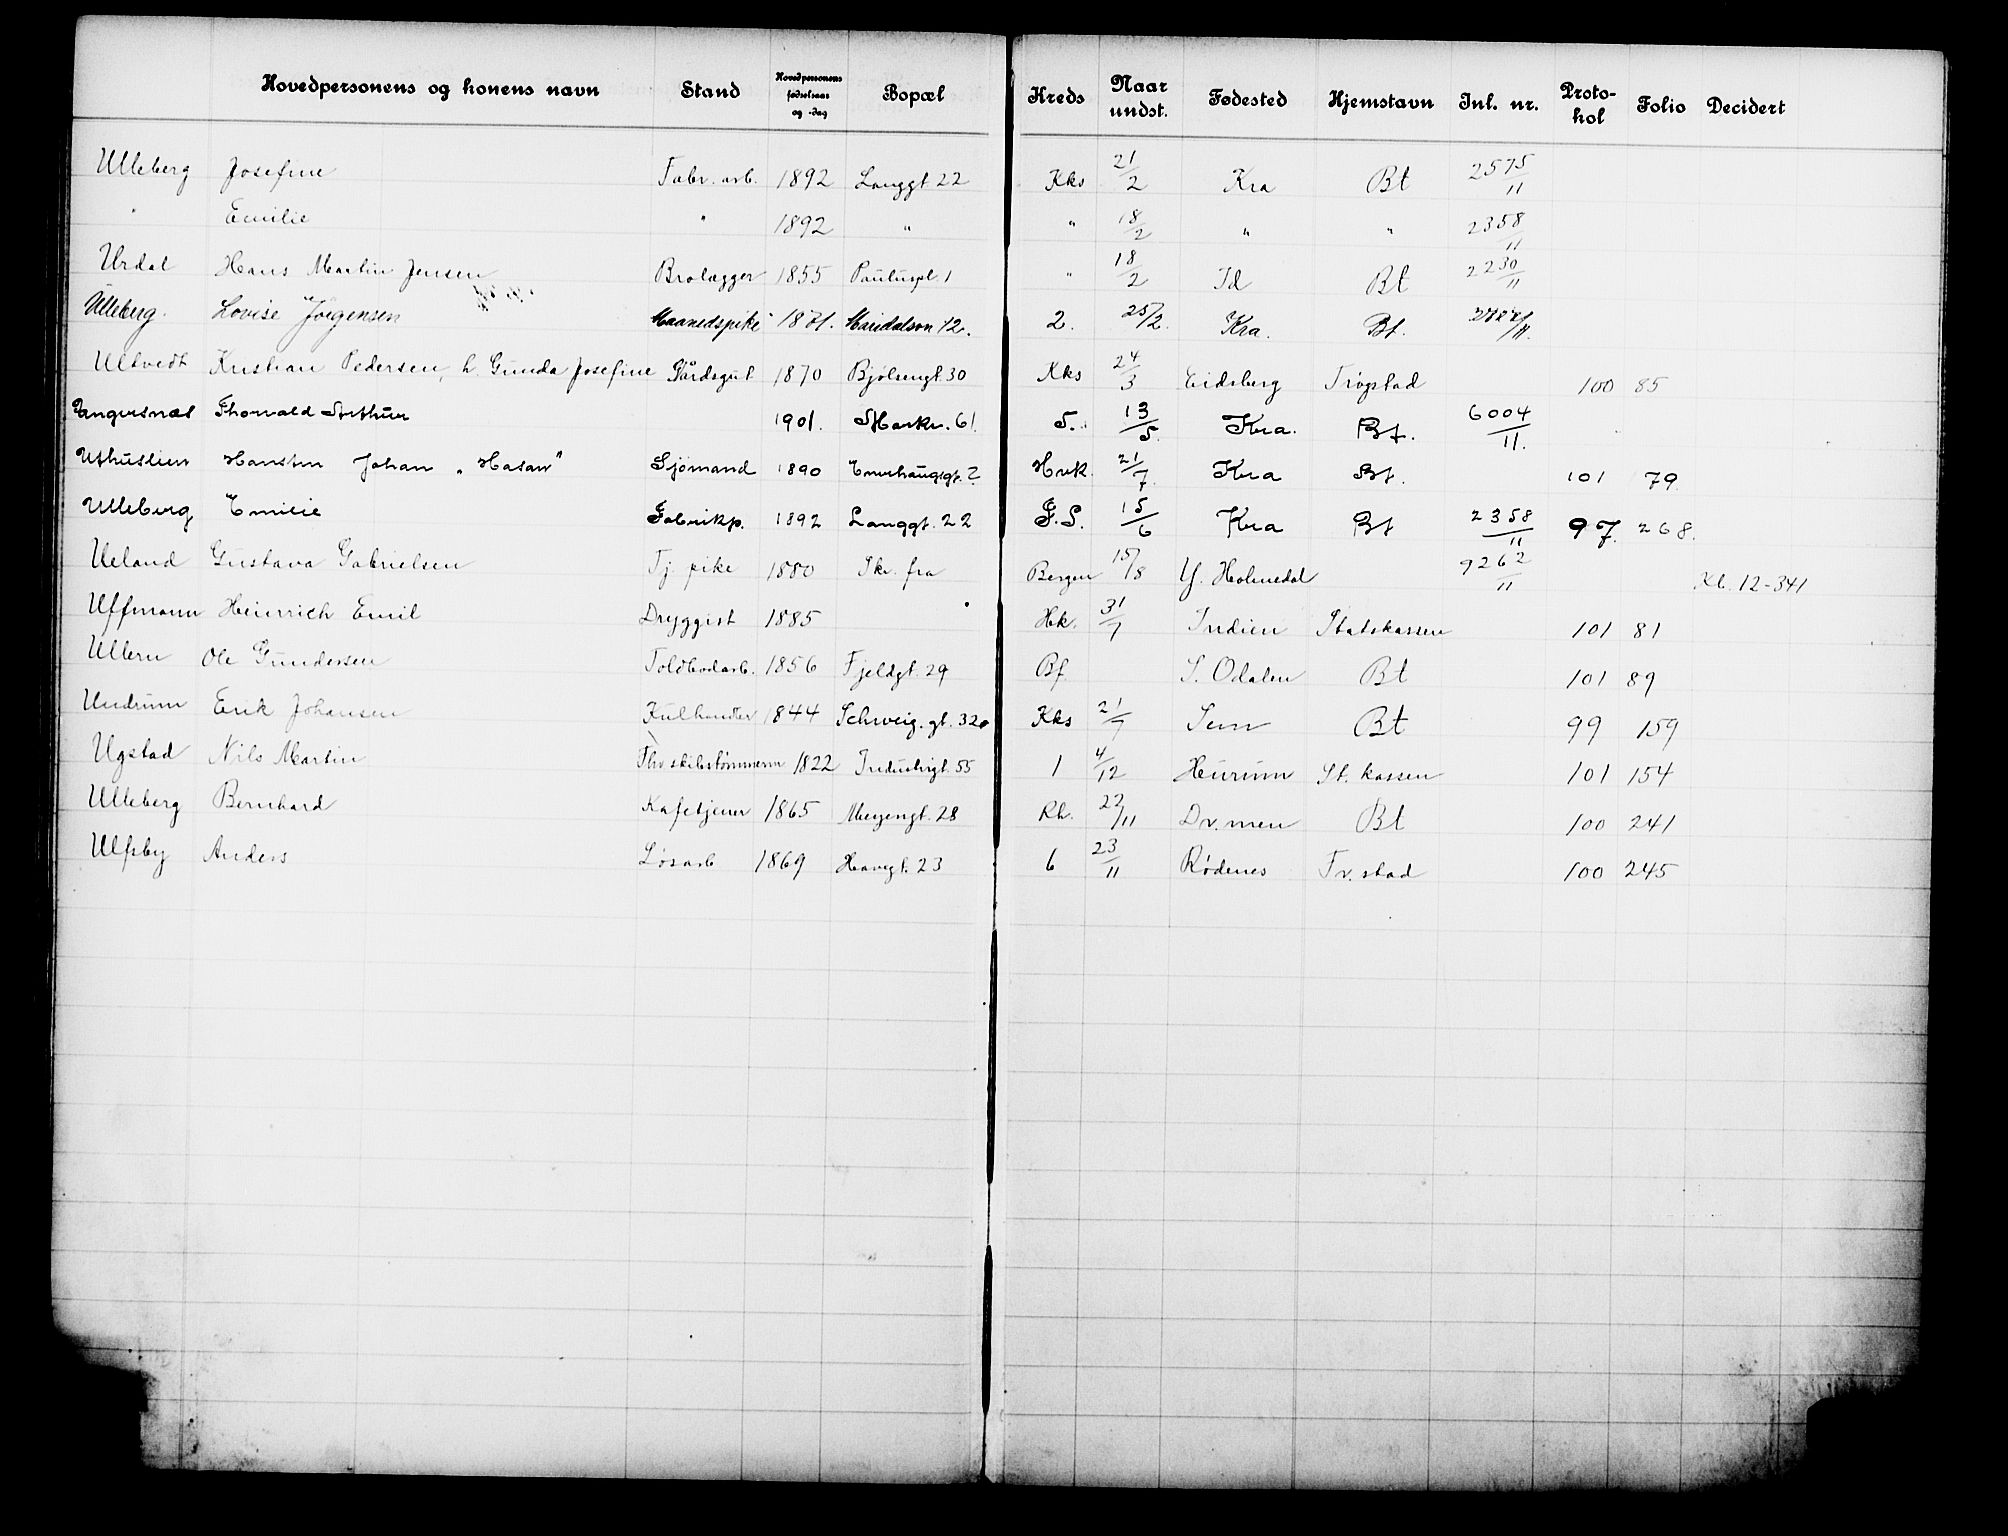 Hovedpersonens og konens navn Stand Hovedpersonens fødselsaar og -dag Bopæl Kreds Naar undst. Fødested Hjemstavn Inl. nr. Protokol Folio Decidert
Ulleberg Josefine Fabr. arb. 1892 Langgt 22 Kks 21/2 Kra Bt 2575/11
" Emilie " 1892 " " 18/2 " " 2358/11
Urdal Hans Martin Jensen Brolægger 1855 Pauluspl. 1 " 18/2 Id Bt 2230/11
Ulleberg. Lovise Jørgensen Maanedspike 1871. Maridalsvn 12. 2. 25/2. Kra. Bt.
Ultvedt Kristian Pedersen, h. Gunda Josefine Gårdsgut 1870 Bjølsengt. 30 Kks 24/3 Eidsberg Trøgstad 100 85
Ungersnæs Thorvald Arthur 1901. Markv. 61. 5. 13/5. Kra. Bt. 6004/11.
Uthuslien Hansten Johan „Hasan" Sjömand 1890 Enerhauggt. 2 Hvk. 21/7. Kra Bt. 101 79.
Ulleberg Emilie Fabrikp. 1892 Langgt. 22 F.S. 15/6 Kra Bt 2358/11 97. 268.
Ueland Gustava Gabrielsen Tj. pike 1880 Skr. fra Bergen 15/8 Y. Holmedal 9262/11 Kl. 12-341
Uffmann Heinrich Emil Dryggist 1885 Hk. 31/7 Indien Statskassen 101 81
Ullern Ole Gundersen Toldbodarb. 1856 Fjeldgt. 29 Bf. S. Odalen Bt 101 89
Undrum Erik Johansen Kulhandler 1844 Schweig. gt. 32 Kks 21/7 Sem Bt 99 159
Ugstad Nils Martin Fhv skibstømmerm 1822 Industrigt. 55 1 4/12 Hurum St. kassen 101 154
Ulleberg Bernhard Kafetjener 1865 Meyergt. 28 Rh. 22/11 Dr.men Bt 100 241
Ulfsby Anders Løsarb 1869 Havegt. 23 6 23/11 Rødenes Fr.stad 100 245